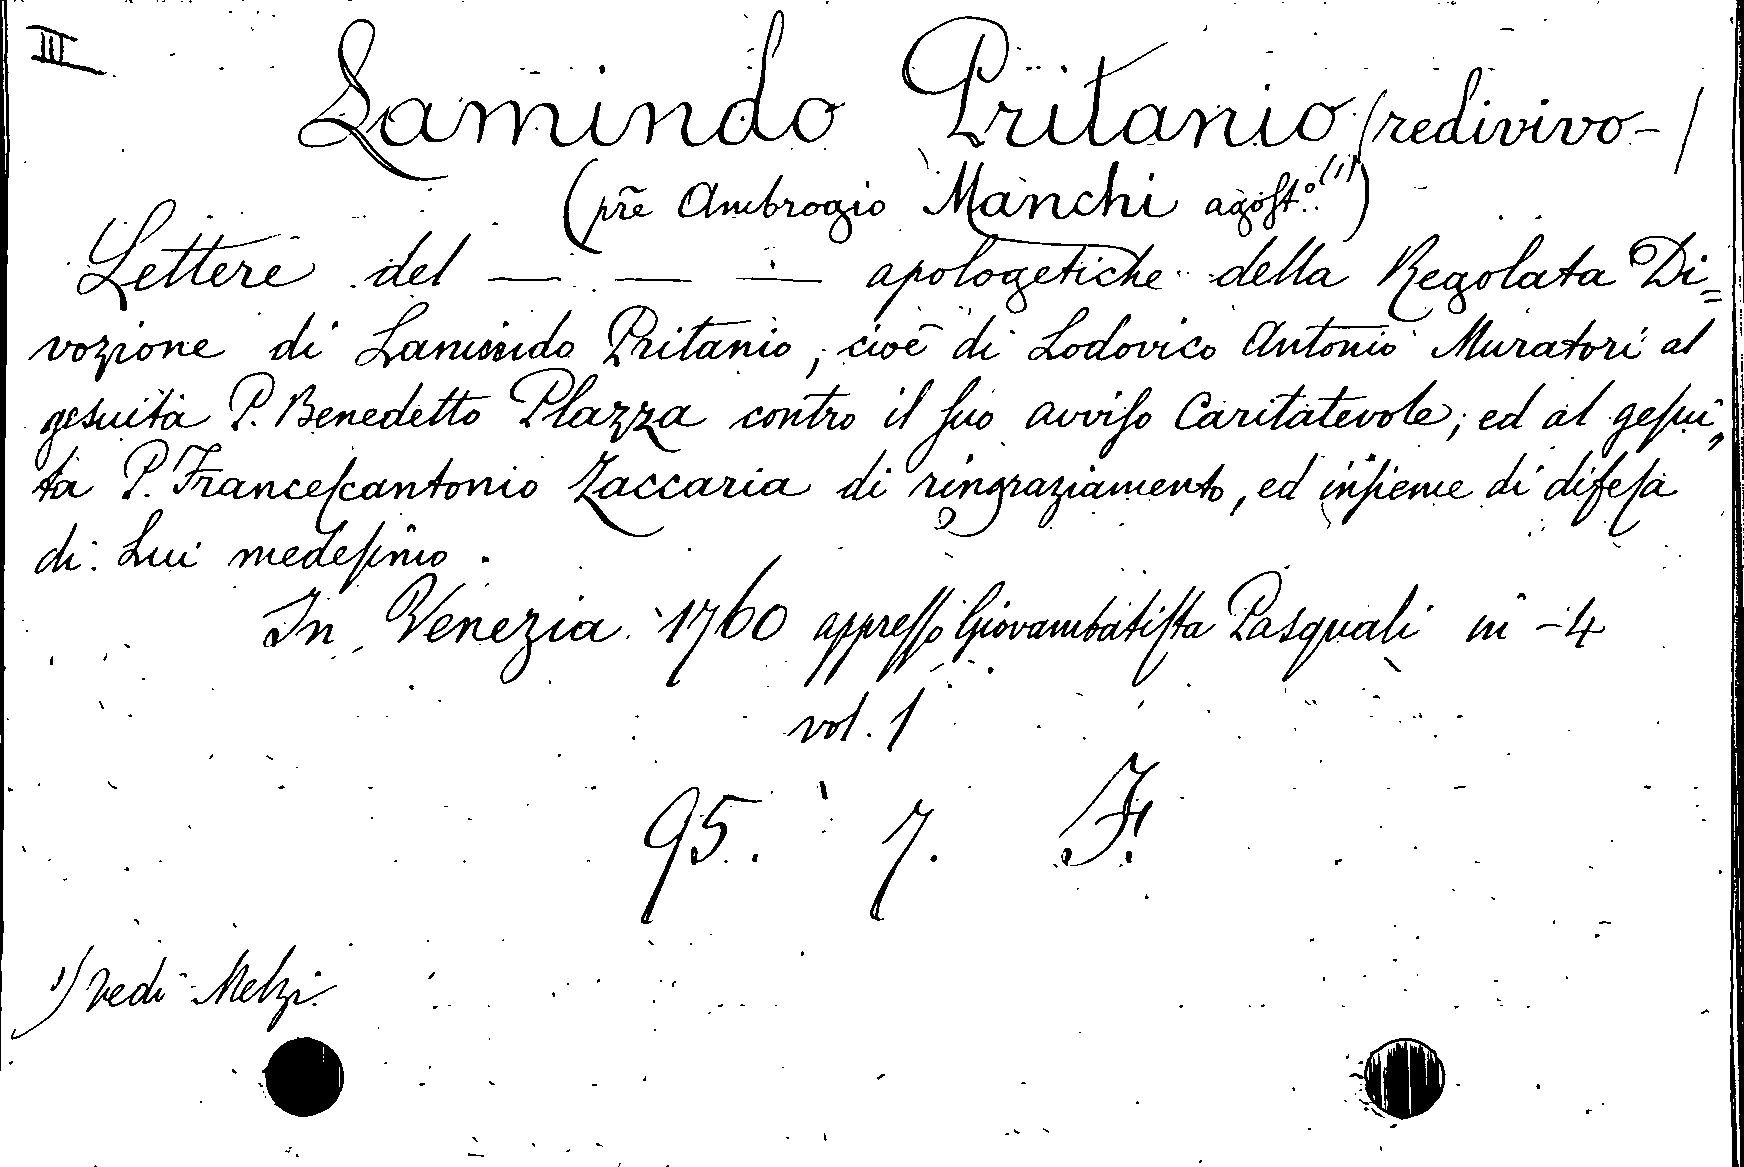 III
Lamindo Pritanio (redivivo-)
(prẽ Ambrogio Manchi agoſt.º (1))
Lettere del — — — apologetiche della Regolata Di=
vozione di Lamindo Pritanio, cioè di Lodovico Antonio Muratori al
gesuita P. Benedetto Plazza contro il ſuo avviſo Caritatevole; ed al geſui„
ta P. Franceſcantonio Zaccaria di ringraziamento, ed inſieme di difeſa
di Lui medeſimo.
In Venezia 1760 appreſſo Giovambatiſta Pasquali in -4
vol. 1
95. 7. F.
1) vedi Melzi.